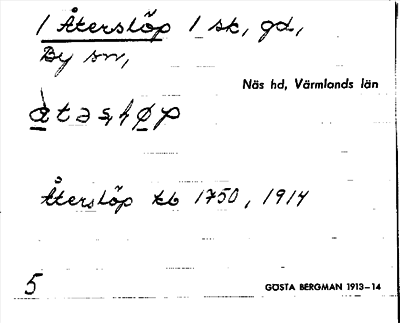 1 Återslöp 1 sk, gd,
By sn,
Näs hd, Värmlands län
Återslöp kb 1750, 1914
5
GÖSTA BERGMAN 1913–14